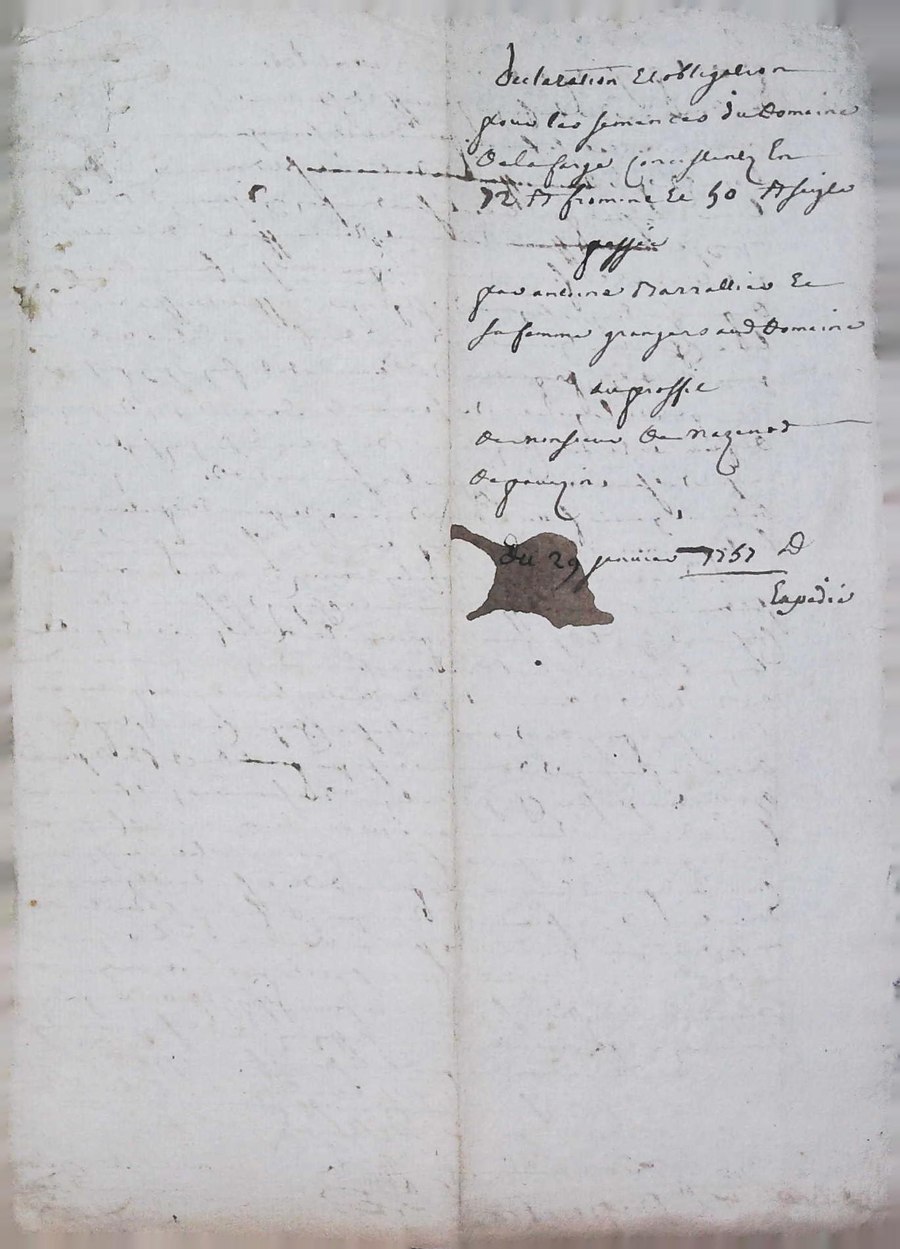 declaration Et obligation
pour les semences du Domaine
De la farge consistantz En
72 froment Et 50 seigle
passée
par antoine Barrallier Et
sa femme grangers aud Domaine
au proffit
de monsieur De Mazenod
de pavezin
Du 29 janvier 1757
Expedié